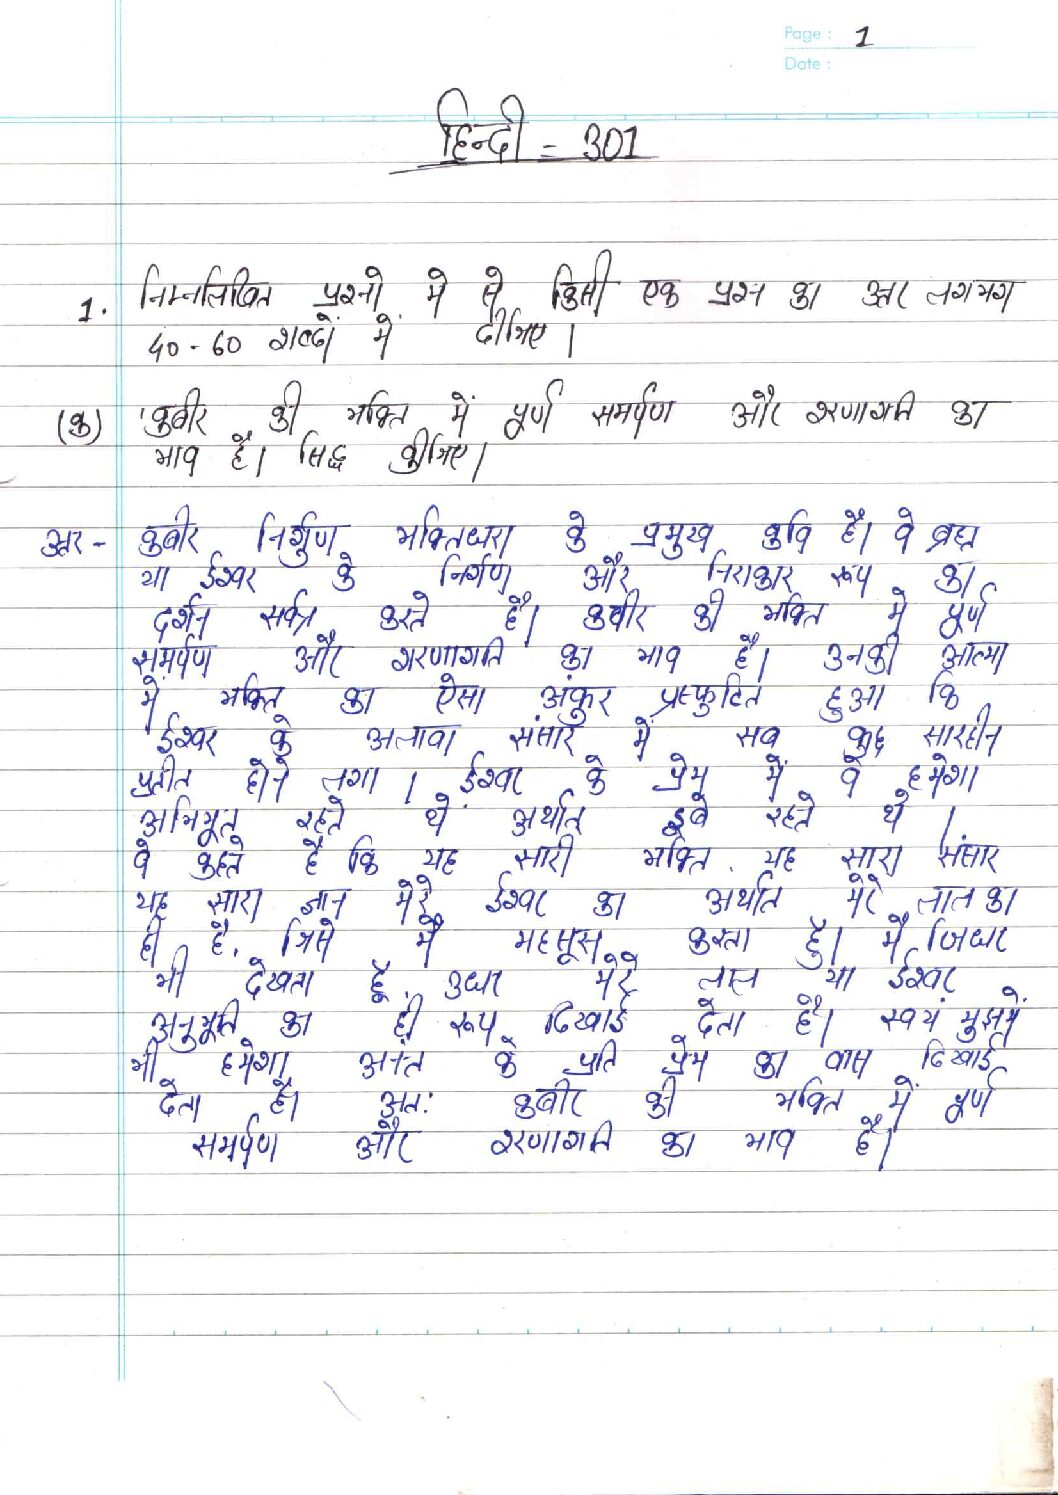 Page : 1
Date :
हिन्दी = 301
1. निम्नलिखित प्रश्नो मे से किसी एक प्रश्न का उत्तर लगभग
40 - 60 शब्दों में दीजिए।
(क) 'कबीर की भक्ति में पूर्ण समर्पण और शरणागति का
भाव है। सिद्ध कीजिए।
उत्तर - कबीर निर्गुण भक्तिधारा के प्रमुख कवि है। वे ब्रह्म
या ईश्वर के निर्गुण और निराकार रूप का
दर्शन सर्वत्र करते है। कबीर की भक्ति मे पूर्ण
समर्पण और शरणागति का भाव है। उनकी आत्मा
मे भक्ति का ऐसा अंकुर प्रस्फुटित हुआ कि
ईश्वर के अलावा संसार में सब कुछ सारहीन
प्रतीत होने लगा। ईश्वर के प्रेम में वे हमेशा
अभिभूत रहते थे अर्थात् डूबे रहते थे।
वे कहते है कि यह सारी भक्ति, यह सारा संसार
यह सारा ज्ञान मेरे ईश्वर का अर्थात मेरे लाल का
ही है, जिसे मैं महसूस करता हूँ। मैं जिधर
भी देखता हूँ, उधर मेरे लाल या ईश्वर
अनुभूति का ही रूप दिखाई देता है। स्वयं मुझमें
भी हमेशा अनंत के प्रति प्रेम का वास दिखाई
देता है। अत: कबीर की भक्ति में पूर्ण
समर्पण और शरणागति का भाव है।